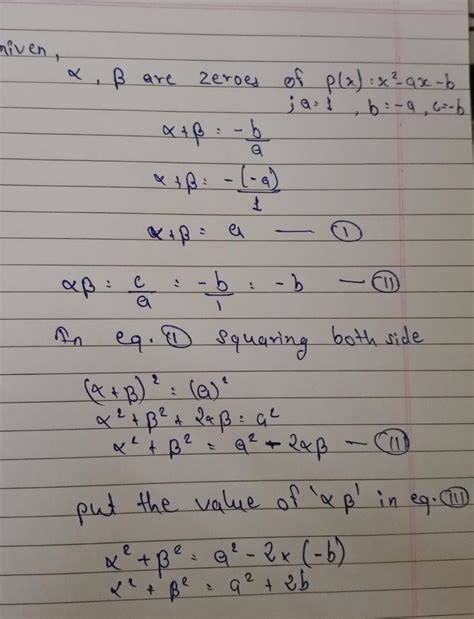 Given,
α, β are zeroes of p(x) : x² - ax - b
; a = 1 , b = -a , c = -b
α+β = -b/a
α+β = -(-a)/1
α+β = a — (I)
αβ = c/a = -b/1 = -b — (II)
In eq. (I) squaring both side
(α+β)² = (a)²
α² + β² + 2αβ = a²
α² + β² = a² - 2αβ — (III)
put the value of 'αβ' in eq. (III)
α² + β² = a² - 2 x (-b)
α² + β² = a² + 2b